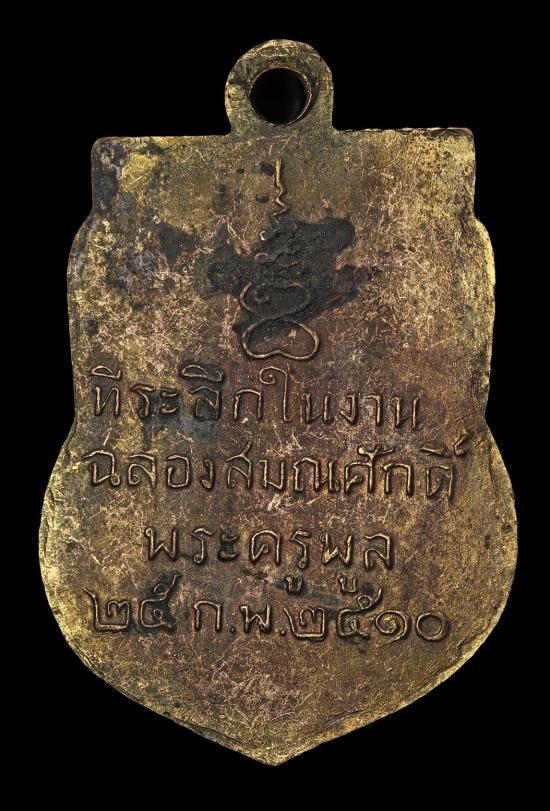 ที่ระลึกในงาน
ฉลองสมณศักดิ์
พระครูพูล
๒๕ ก.พ.๒๕๑๐